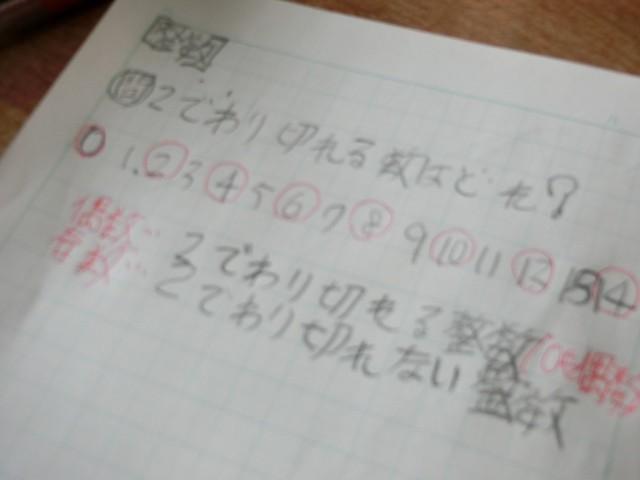 整数
問 2でわり切れる数はどれ?
0 1, 2 3 4 5 6 7 8 9 10 11 12 13 14
偶数… 2でわり切れる整数(0も偶数)
奇数… 2でわり切れない整数